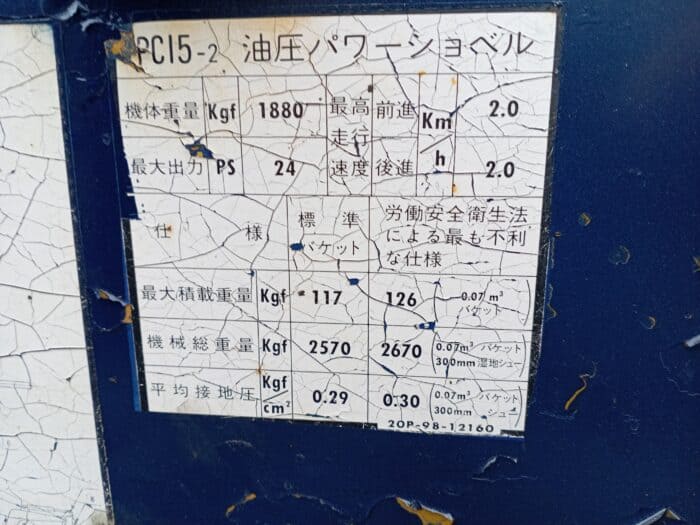 PC15-2 油圧パワーショベル
機体重量 Kgf 1880 最高走行速度 前進 Km/h 2.0
最大出力 PS 24 後進 2.0
仕様 標準バケット 労働安全衛生法による最も不利な仕様
最大積載重量 Kgf 117 126 (0.07m³バケット)
機械総重量 Kgf 2570 2670 (0.07m³バケット 300mm湿地シュー)
平均接地圧 Kgf/cm² 0.29 0.30 (0.07m³バケット 300mmシュー)
20P-98-12160